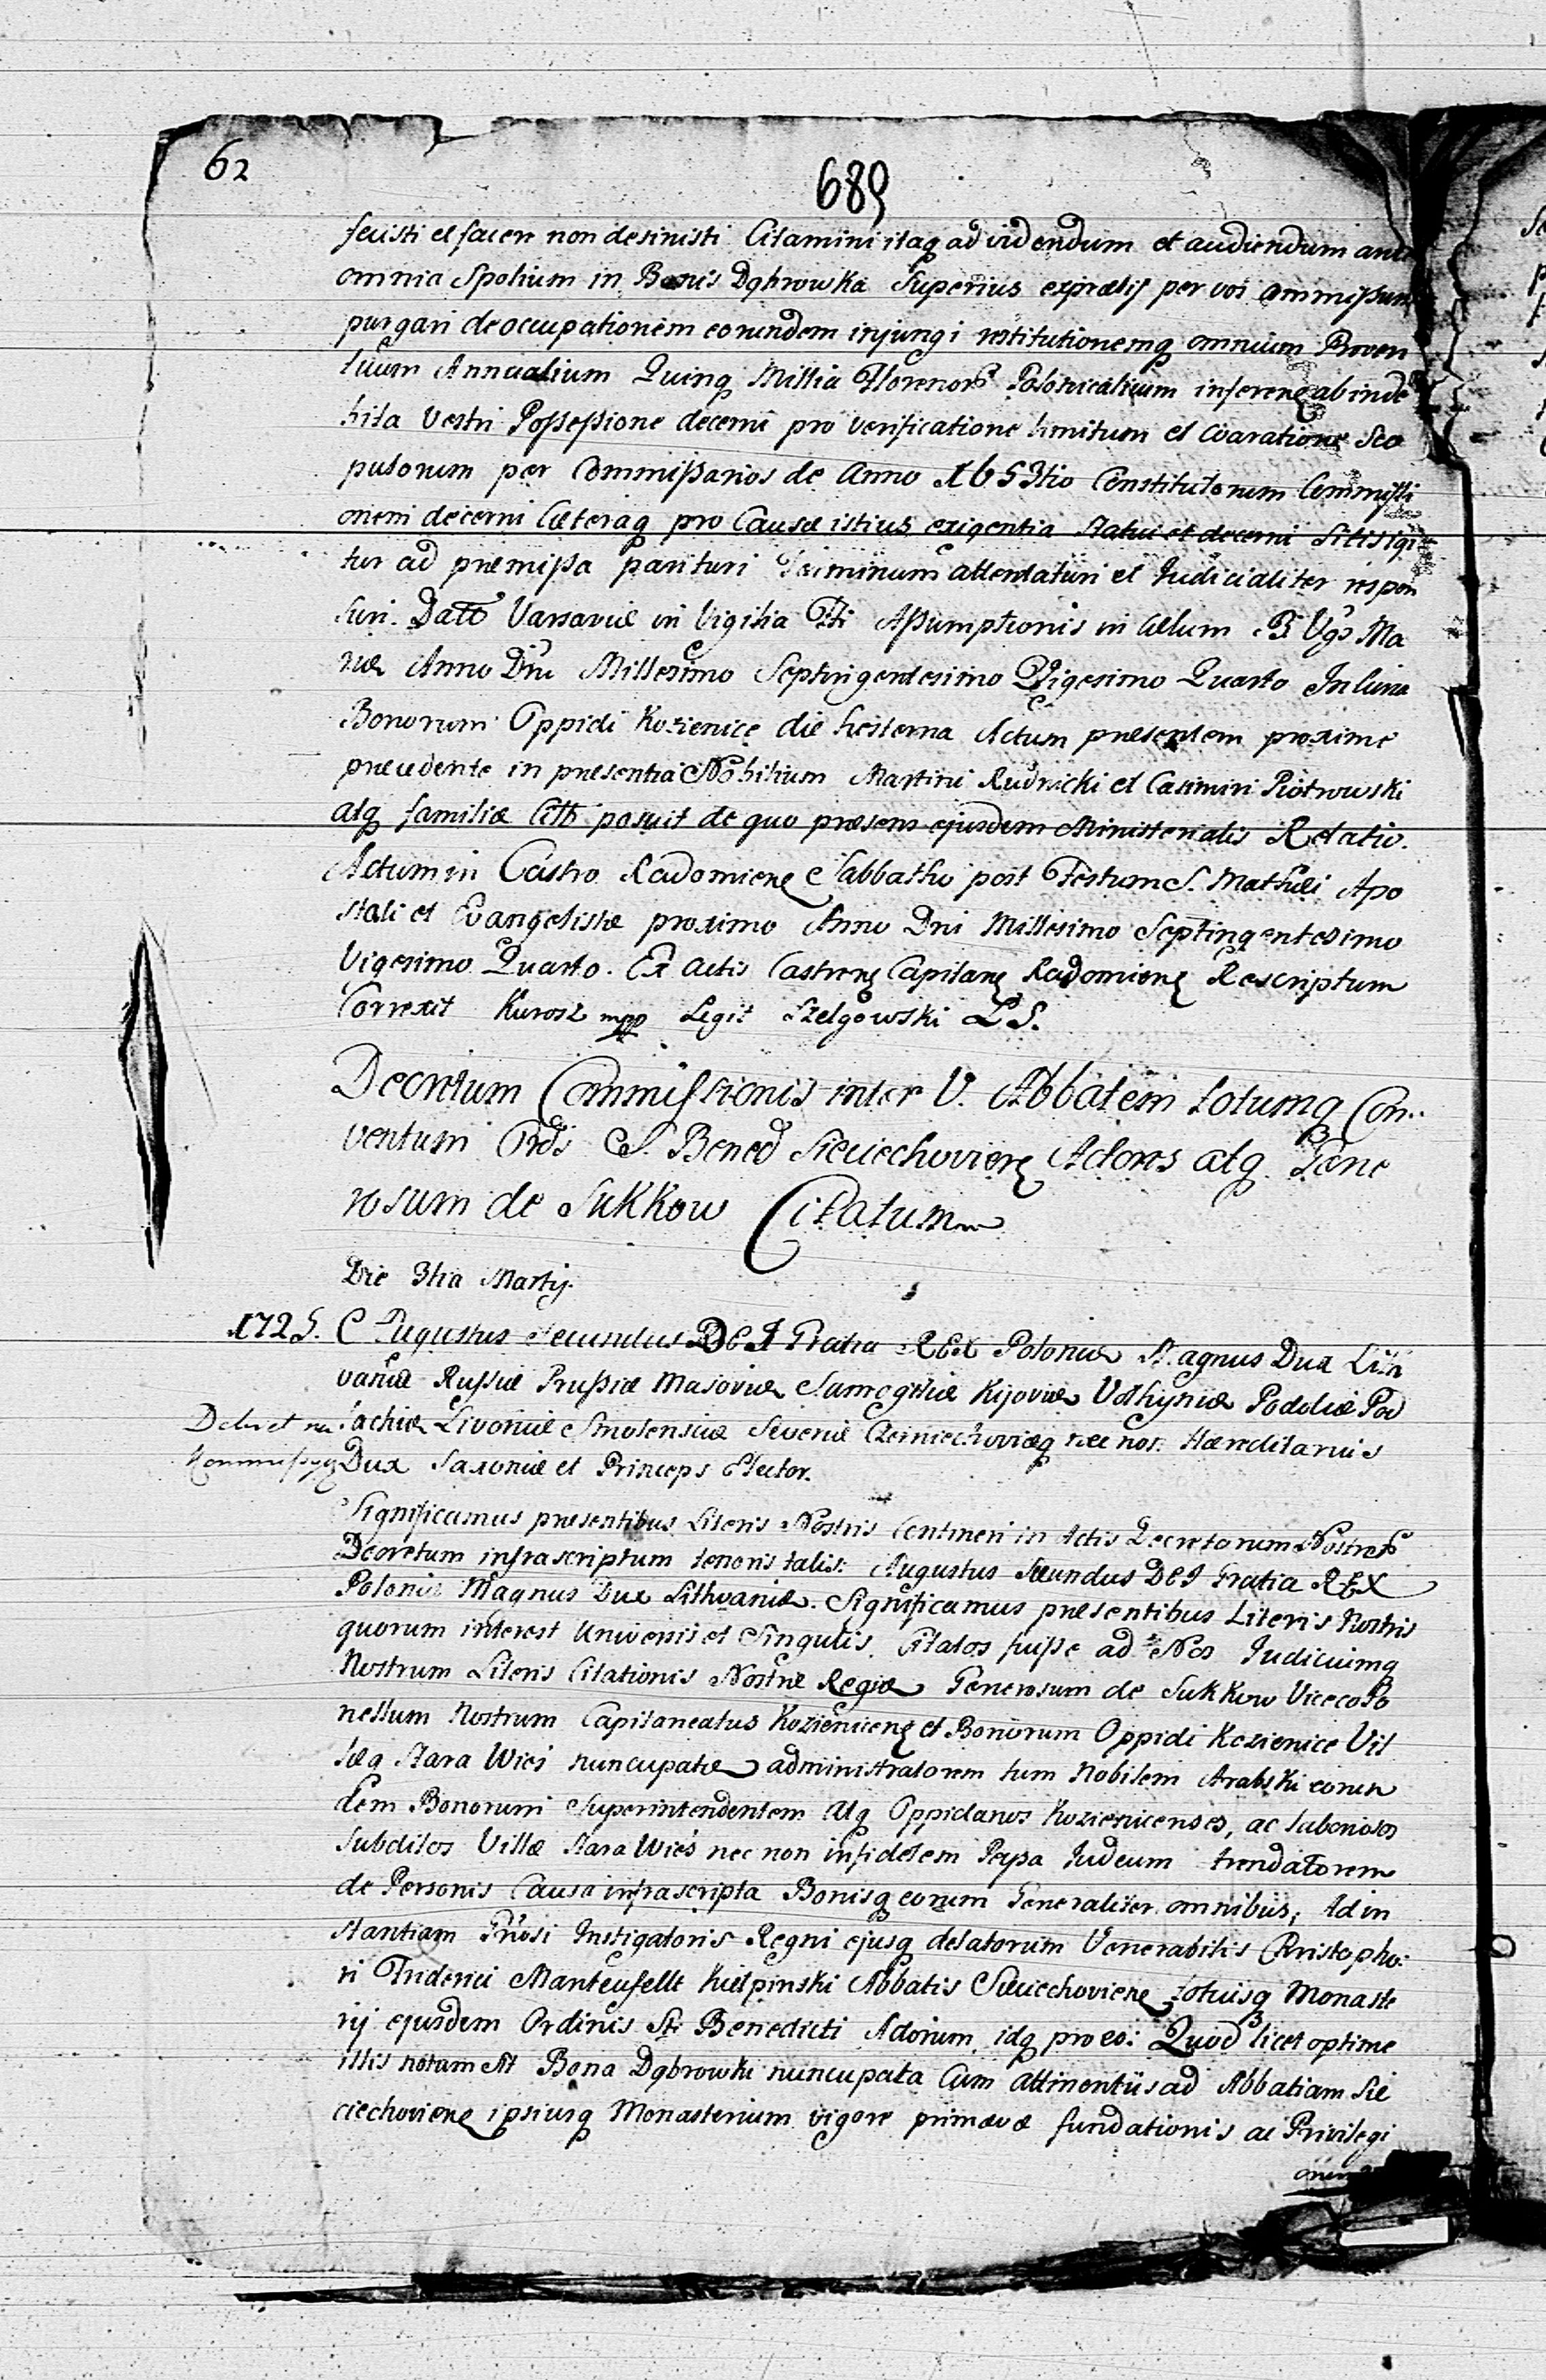 62
689
fecisti et facere non desinisti Citamini itaq ad videndum et audiendum ante
omnia Spolium in Bonis Dąbrowka Superius expressis per vos commissum
purgari deoccupationem eorundem injungi restitutionemq omnium Proven
tuum Annualium Quinq Millia Florenor Polonicalium inferen ab inde
bita Vestri Possessione decerni pro Verificatione limitum et Coaratione Sco
pulorum per Commissarios de Anno 1653tio Constitutorum Commissi
onem decerni Cæteraq pro Causæ istius exigentia statui et decerni Sitis igi
tur ad præmissa parituri Terminum attentaturi et Judicialiter respon
suri. Datt Varsaviæ in Vigilia Fti Assumptionis in Cælum B Vgs Ma
riæ Anno Dni Millesimo Septingentesimo Vigesimo Quarto In Curia
Bonorum Oppidi Kozienice die hesterna Actum præsentem proxime
præcedente in præsentia Nobilium Martini Rudnicki et Casimiri Piotrowski
atq familiæ Citt posuit de quo præsens ejusdem Ministerialis Relatio.
Actum in Castro Radomien Sabbatho post Festum S. Mathæi Apo
stoli et Evangelistæ proximo Anno Dni Millesimo Septingentesimo
Vigesimo Quarto. Ex Actis Castren Capitan Radomien Rescriptum
Correxit Kurosz mpp Legit Szelgowski L S.
Decretum Commissionis inter V. Abbatem totumq Con..
ventum Ords S. Bened Sieciechovien Actores atq Gene
rosum de Sukkow Citatum
Die 3tia Martij.
1725. Augustus Secundus DEI Gratia REX Poloniæ Magnus Dux Lith
vaniæ Russiæ Prussiæ Masoviæ Samogitiæ Kijoviæ Volhyniæ Podoliæ Pod
lachiæ Livoniæ Smolensciæ Severiæ Czerniechoviæq nec non Hæreditarius
Dekret na
Kommissyą
Dux Saxoniæ et Princeps Elector.
Significamus præsentibus Literis Nostris Contineri in Actis Decretorum Nostror
Decretum infrascriptum tenoris talis: Augustus Secundus DEI Gratia REX
Poloniæ Magnus Dux Lithvaniæ. Significamus præsentibus Literis Nostris
quorum interest Universis et Singulis. Citatos fuisse ad Nos Judiciumq
Nostrum Literis Citationis Nostræ Regiæ Generosum de Sukkow Vicecolo
nellum Nostrum Capitaneatus Kozienicen et Bonorum Oppidi Kozienice Vil
læq Stara Wieś nuncupatæ administratorem tum Nobilem Arabski eorun
dem Bonorum Superintendentem atq Oppidanos Kozienicenses, ac laboriosos
Subditos Villæ Stara Wieś nec non infidelem Peysa Judæum Arendatorem
de Personis Causa infrascripta Bonisq eorum Generaliter omnibus, Ad in
stantiam Gnosi Instigatoris Regni ejusq delatorum Venerabilis Christopho:
ri Friderici Manteufell Kiełpinski Abbatis Sieciechovien totiusq Monaste
rij ejusdem Ordinis Sti Benedicti Actorum, idq pro eo: Quod licet optime
illis notum est Bona Dąbrowki nuncupata Cum attinentiis ad Abbatiam Sie
ciechovien ipsiusq Monasterium vigore primævæ fundationis ac Privilegi
orum